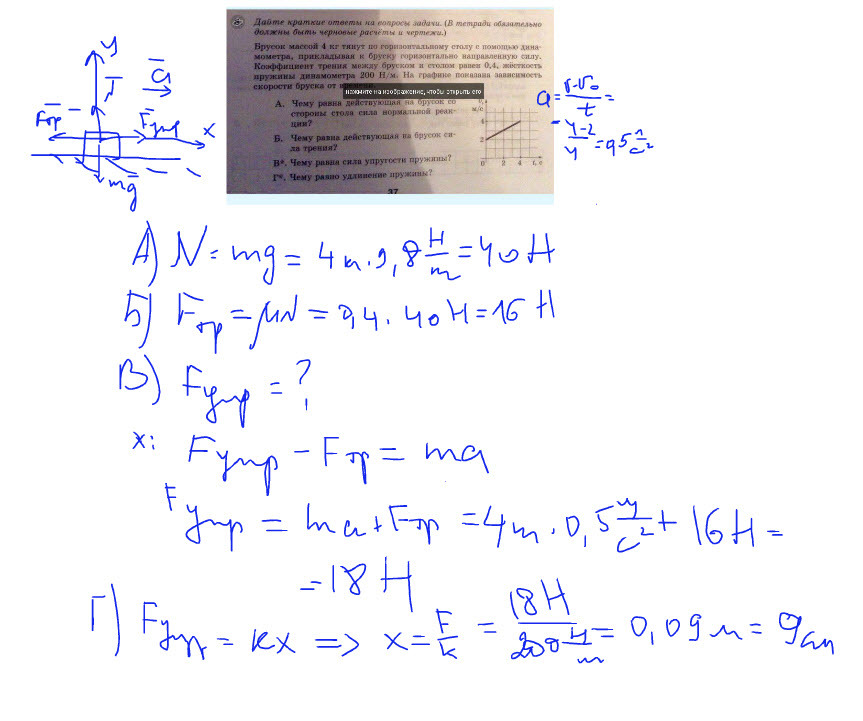 Дайте краткие ответы на вопросы задачи. (В тетради обязательно
должны быть черновые расчёты и чертежи.)
Брусок массой 4 кг тянут по горизонтальному столу с помощью дина-
мометра, прикладывая к бруску горизонтально направленную силу.
Коэффициент трения между бруском и столом равен 0,4, жёсткость
пружины динамометра 200 Н/м. На графике показана зависимость
скорости бруска от
нажмите на изображение, чтобы открыть его
А. Чему равна действующая на брусок со
стороны стола сила нормальной реак-
ции?
Б. Чему равна действующая на брусок си-
ла трения?
В*. Чему равна сила упругости пружины?
Г*. Чему равно удлинение пружины?
м/с
4
2
0 2 4 t, с
37
y
N
a
Fтр
Fупр
x
mg
a = v-v₀/t =
= 4-2/4 = 0,5 м/с²
А) N = mg = 4 кг · 9,8 Н/м = 40 Н
Б) Fтр = μN = 0,4 · 40 Н = 16 Н
В) Fупр = ?
x: Fупр - Fтр = ma
Fупр = ma + Fтр = 4 кг · 0,5 м/с² + 16 Н =
= 18 Н
Г) Fупр = kx => x = F/k = 18 Н/200 Н/м = 0,09 м = 9 см